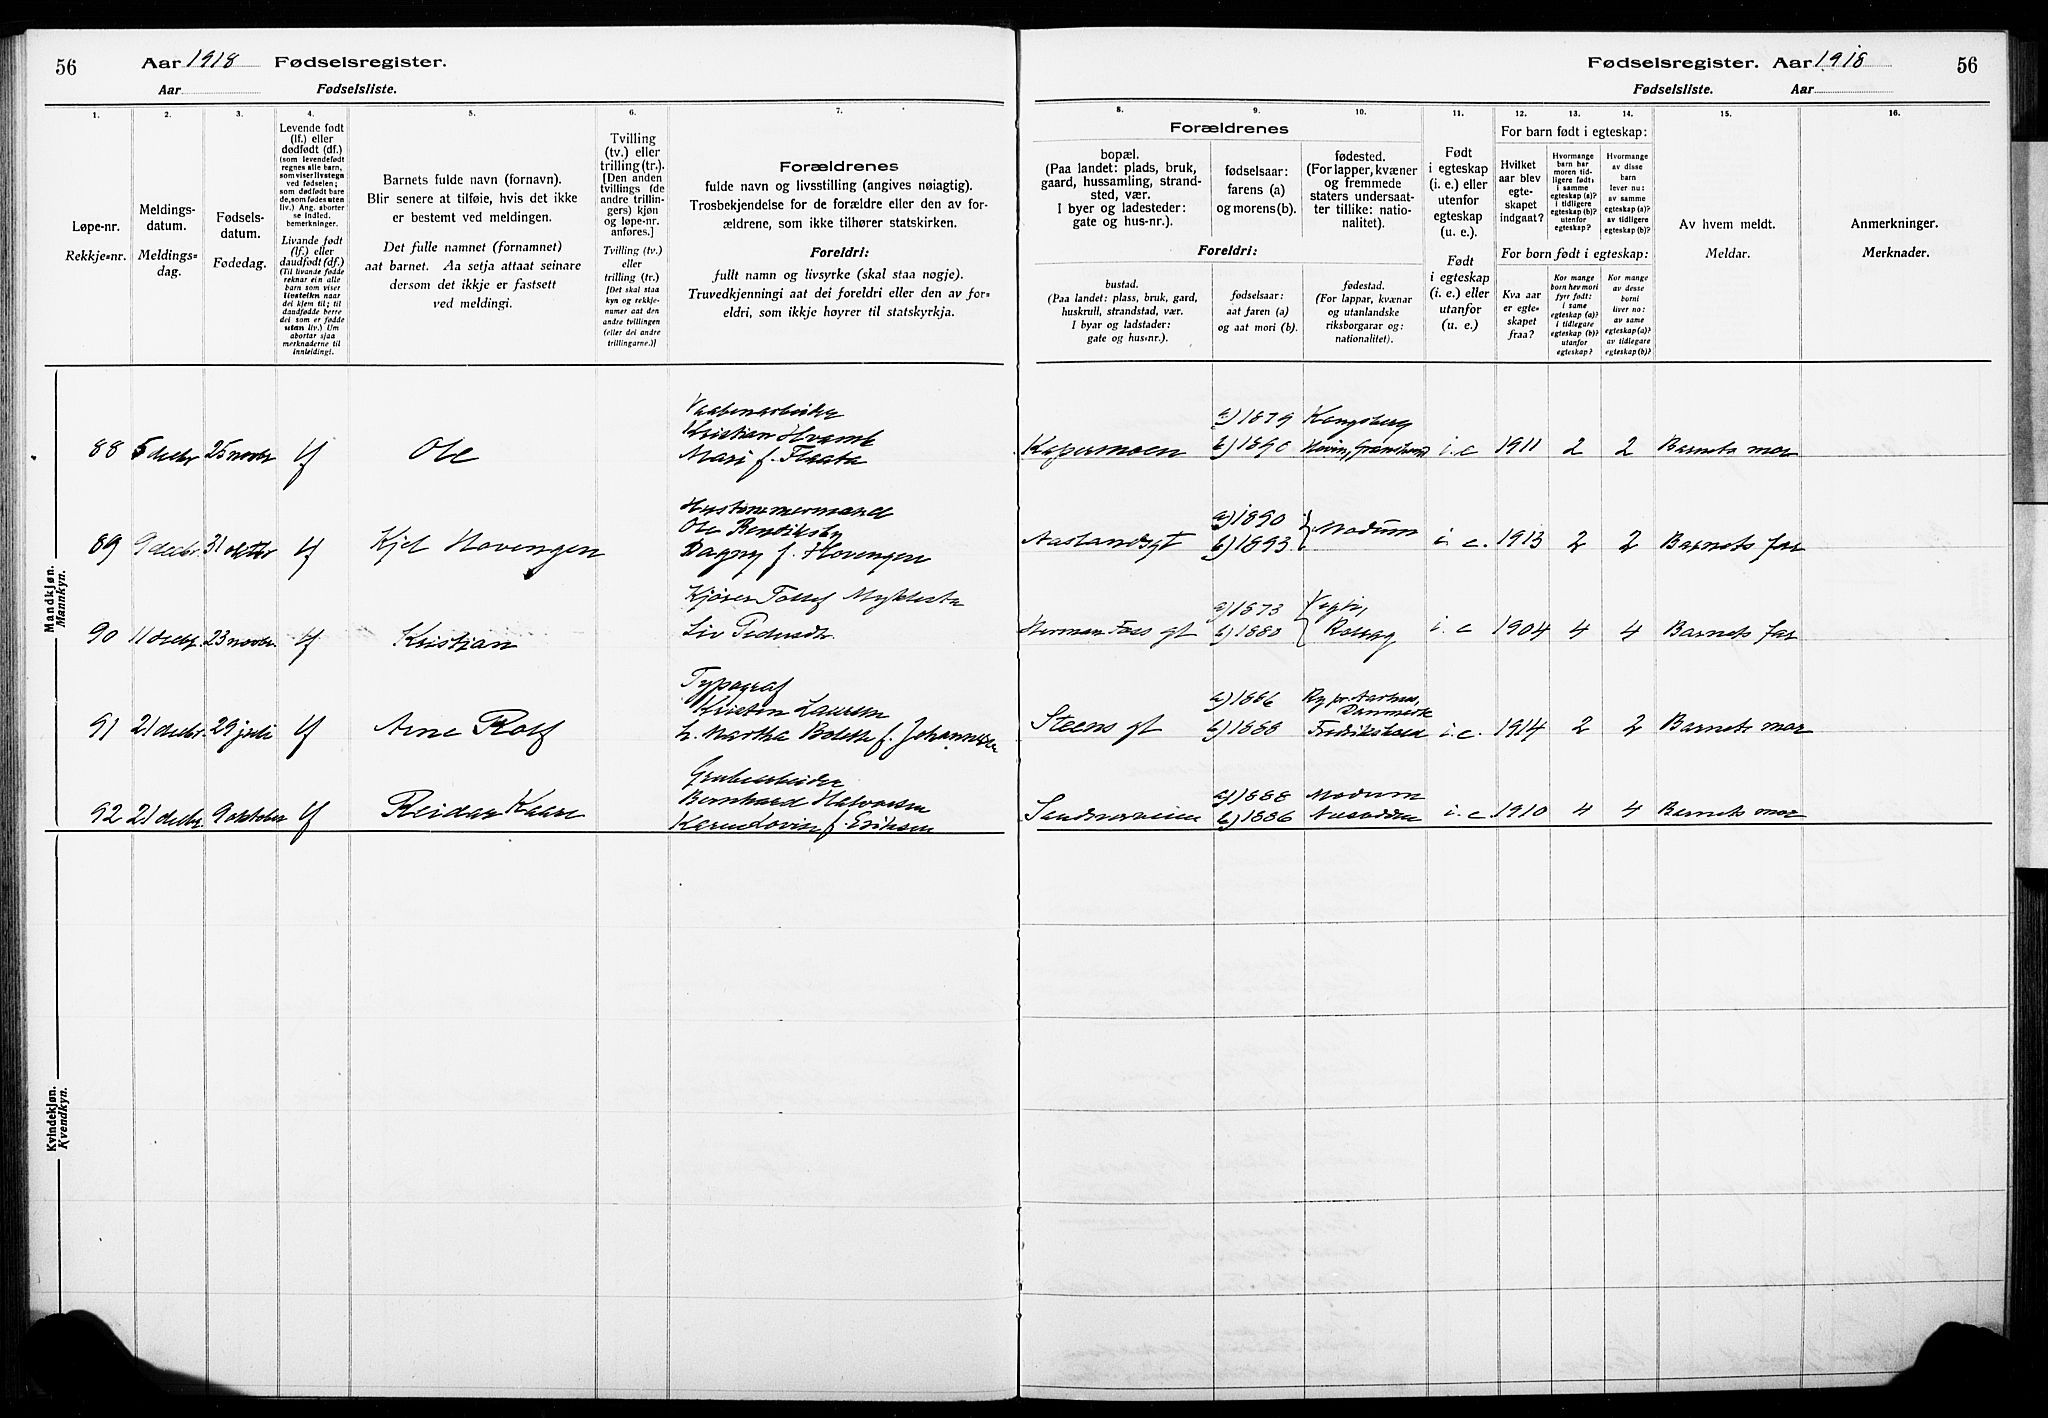 56 Aar 1918 Fødselsregister.
Aar Fødselsliste.
Fødselsregister. Aar 1918 56
Fødselsliste. Aar
1. 2. 3. 4. 5. 6. 7.
Løpe-nr.
Rekkje-nr.
Meldings-
datum.
Meldings-
dag.
Fødsels-
datum.
Fødedag.
Levende født
(lf.) eller
dødfødt (df.)
(som levendefødt
regnes alle barn,
som viser livstegn
ved fødselen;
som dødfødt bare
de, som fødes uten
liv.) Ang. aborter
se indled.
bemerkninger.
Livande født
(lf.) eller
daudfødt (df.)
(Til livande fødde
reknar ein alle
barn som viser
livsteikn naar
dei kjem til; til
daudfødde berre
dei som er fødde
utan liv.) Um
abortar sjaa
merknaderne til
innleidingi.
Barnets fulde navn (fornavn).
Blir senere at tilføie, hvis det ikke
er bestemt ved meldingen.
Det fulle namnet (fornamnet)
aat barnet. Aa setja attaat seinare
dersom det ikkje er fastsett
ved meldingi.
Tvilling
(tv.) eller
trilling (tr.).
[Den anden
tvillings (de
andre trillin-
gers) kjøn
og løpe-nr.
anføres.]
Tvilling (tv.)
eller
trilling (tr.)
[Det skal staa
kyn og rekkje-
numer aat den
andre tvillingen
(eller dei andre
trillingarne.)]
Forældrenes
fulde navn og livsstilling (angives nøiagtig).
Trosbekjendelse for de forældre eller den av for-
ældrene, som ikke tilhører statskirken.
Foreldri:
fullt namn og livsyrke (skal staa nøgje).
Truvedkjenningi aat dei foreldri eller den av for-
eldri, som ikkje høyrer til statskyrkja.
8. 9. 10. 11. 12. 13. 14. 15. 16.
Forældrenes
bopæl.
(Paa landet: plads, bruk,
gaard, hussamling, strand-
sted, vær.
I byer og ladesteder:
gate og hus-nr.).
fødselsaar:
farens (a)
og morens (b).
fødested.
(For lapper, kvæner
og fremmede
staters undersaat-
ter tillike: natio-
nalitet).
Foreldri:
bustad.
(Paa landet: plass, bruk, gard,
huskrull, strandstad, vær.
I byar og ladstader:
gate og hus-nr.).
fødselsaar:
aat faren (a)
og aat mori (b).
fødestad.
(For lappar, kvænar
og utanlandske
riksborgarar og:
nationalitet).
Født
i egteskap
(i. e.) eller
utenfor
egteskap
(u. e.).
Født
i egteskap
(i. e.) eller
utanfor
(u. e.)
For barn født i egteskap:
Hvilket
aar blev
egte-
skapet
indgaat?
Hvormange
barn har
moren tid-
ligere født:
i samme
egteskap (a)?
i tidligere
egteskap (b)?
utenfor
egteskap?
Hvormange
av disse
barn
lever nu:
av samme
egteskap (a)?
av tidligere
egteskap (b)?
For born født i egteskap:
Kva aar
er egte-
skapet
fraa?
Kor mange
born hev mori
fyrr født:
i same
egteskap (a)?
i tidlegare
egteskap (b)?
utanfor
egteskap?
Kor mange
av desse
borni
liver no:
av same
egteskap (a)?
av tidlegare
egteskap (b)?
Av hvem meldt.
Meldar.
Anmerkninger.
Merknader.
Mandkjøn.
Mannkyn.
Vaabenarbeider
Kristian
88 5 decbr 25 novbr lf Ole Mari f.
a) 1879 Kongsberg
b) 1890 i. e 1911 2 2 Barnets mor
Hustømmermand
Ole Bendiksby
89 9 decbr. 31 oktbr lf Kjel Hovengen Dagny f. Hovengen
a) 1890 Modum
Aaslandsgt b) 1893. i. e. 1913 2 2 Barnets far
Kjører Tollef
90 11 decbr. 23 novbr. lf Kristian Liv Pedersdtr.
a) 1873 Veglie,
Herman Foss gt b) 1880 Rollag i. e 1904 4 4 Barnets far
Typograf
Kristen Laursen
91 21 decbr. 29 juli lf Arne Rolf Martha Bolette f. Johannesen
a) 1886 Ry pr. Aarhus,
Danmark
Steens gt b) 1888 Fredrikshald i. e. 1914 2 2 Barnets mor
Grubearbeider
Bernhard Halvorsen
92 21 decbr. 9 oktober lf Reidar Kaare Karen Lovise f. Eriksen
a) 1888 Modum
Sandsværveien b) 1886 Næsodden i. e. 1910 4 4 Barnets mor
Kvindekjøn.
Kvendkyn.